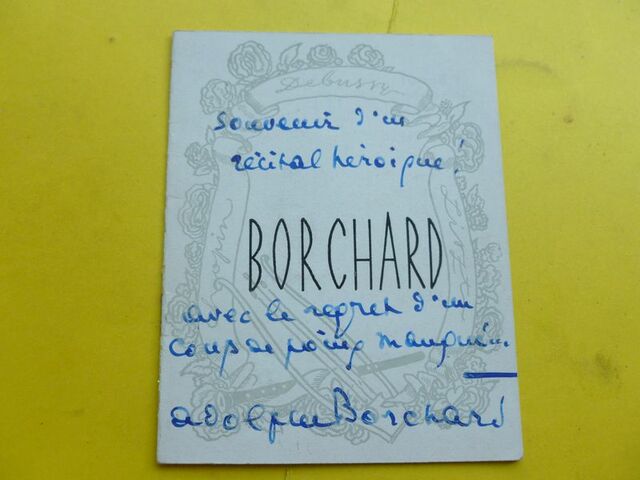 Debussy
souvenir d'un
récital héroïque!
Chopin
BORCHARD
avec le regret d'un
coup de poing manqué...
Adolphe Borchard